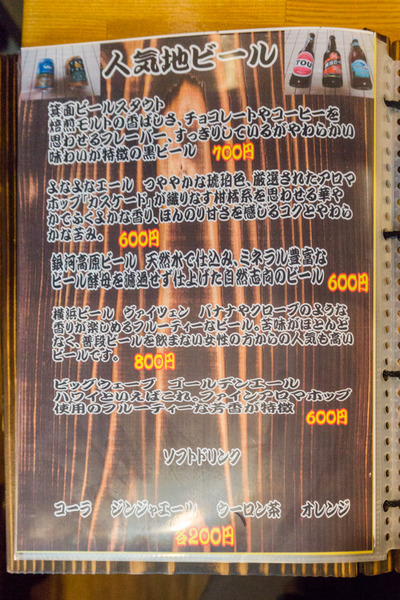 人気地ビール
箕面ビールスタウト
焙煎モルトの香ばしさ、チョコレートやコーヒーを
思わせるフレーバー、すっきりしているがやわらかい
味わいが特徴の黒ビール 700円
よなよなエール つややかな琥珀色、厳選されたアロマ
ホップ「カスケード」が織りなす柑橘系を思わせる華や
かでふくよかな香り、ほんのり甘さを感じるコクとやわら
かな苦み。 600円
銀河高原ビール 天然水で仕込み、ミネラル豊富な
ビール酵母を濾過せず仕上げた自然志向のビール 600円
横浜ビール ヴァイツェン バナナやクローブのような
香りが楽しめるフルーティーなビール。苦味がほとんど
なく、普段ビールを飲まない女性の方からの人気も高い
ビールです。 800円
ビッグウェーブ ゴールデンエール
ハワイといえばこれ、ファインアロマホップ
使用のフルーティーな芳香が特徴 600円
ソフトドリンク
コーラ ジンジャエール ウーロン茶 オレンジ
各200円